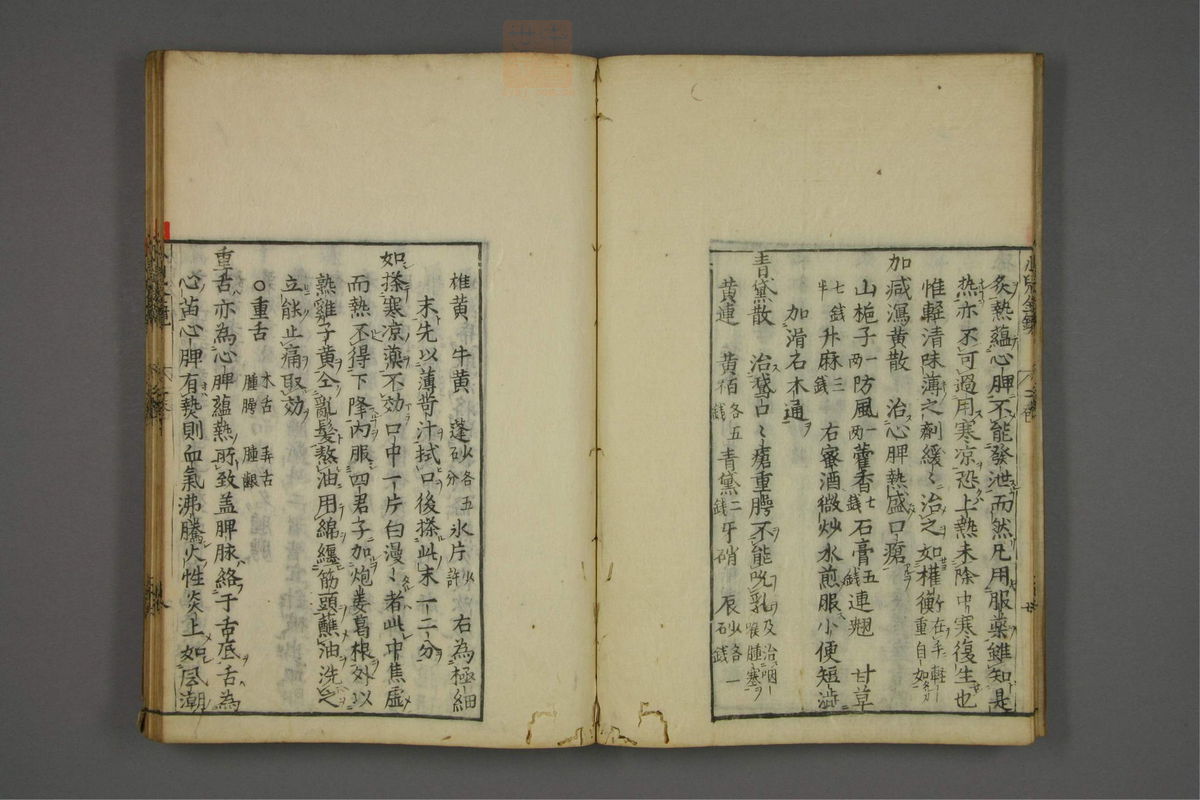 炙熱蘊心脾不能發泄而然凡用服藥雖知是
热亦不可過用寒凉恐上熱未除中寒復生也
惟軽清味薄之劑緩〻治之如權衡在手軽重自如
加减瀉黄散 治心脾熱盛口瘡
山梔子一兩 防風一兩 藿香七錢 石膏五錢 連翹 甘草
七錢半 升麻三錢 右蜜酒微炒水煎服小便短澁
加滑石木通
青黛散 治鵞口〻瘡重腭不能吮乳及治咽喉腫塞
黄連 黄栢各五錢 青黛二錢 牙硝 辰砂各一錢
雄黄 牛黄 蓬砂各五分 氷片少許 右為極細
末先以薄苛汁拭口後搽此末一二分
如搽寒凉藥不効口中一片白漫〻者此中焦虚
而熱不得下降内服四君子加炮姜葛根外以
熟雞子黄仝亂髮熬油用綿纏筯頭蘸油洗之
立能止痛取効
○重舌 木舌 弄舌
重腭 重齦
重舌亦為心脾蘊熱所致盖脾脉絡于舌底舌為
心苗心脾有熱則血氣沸騰火性炎上如風潮